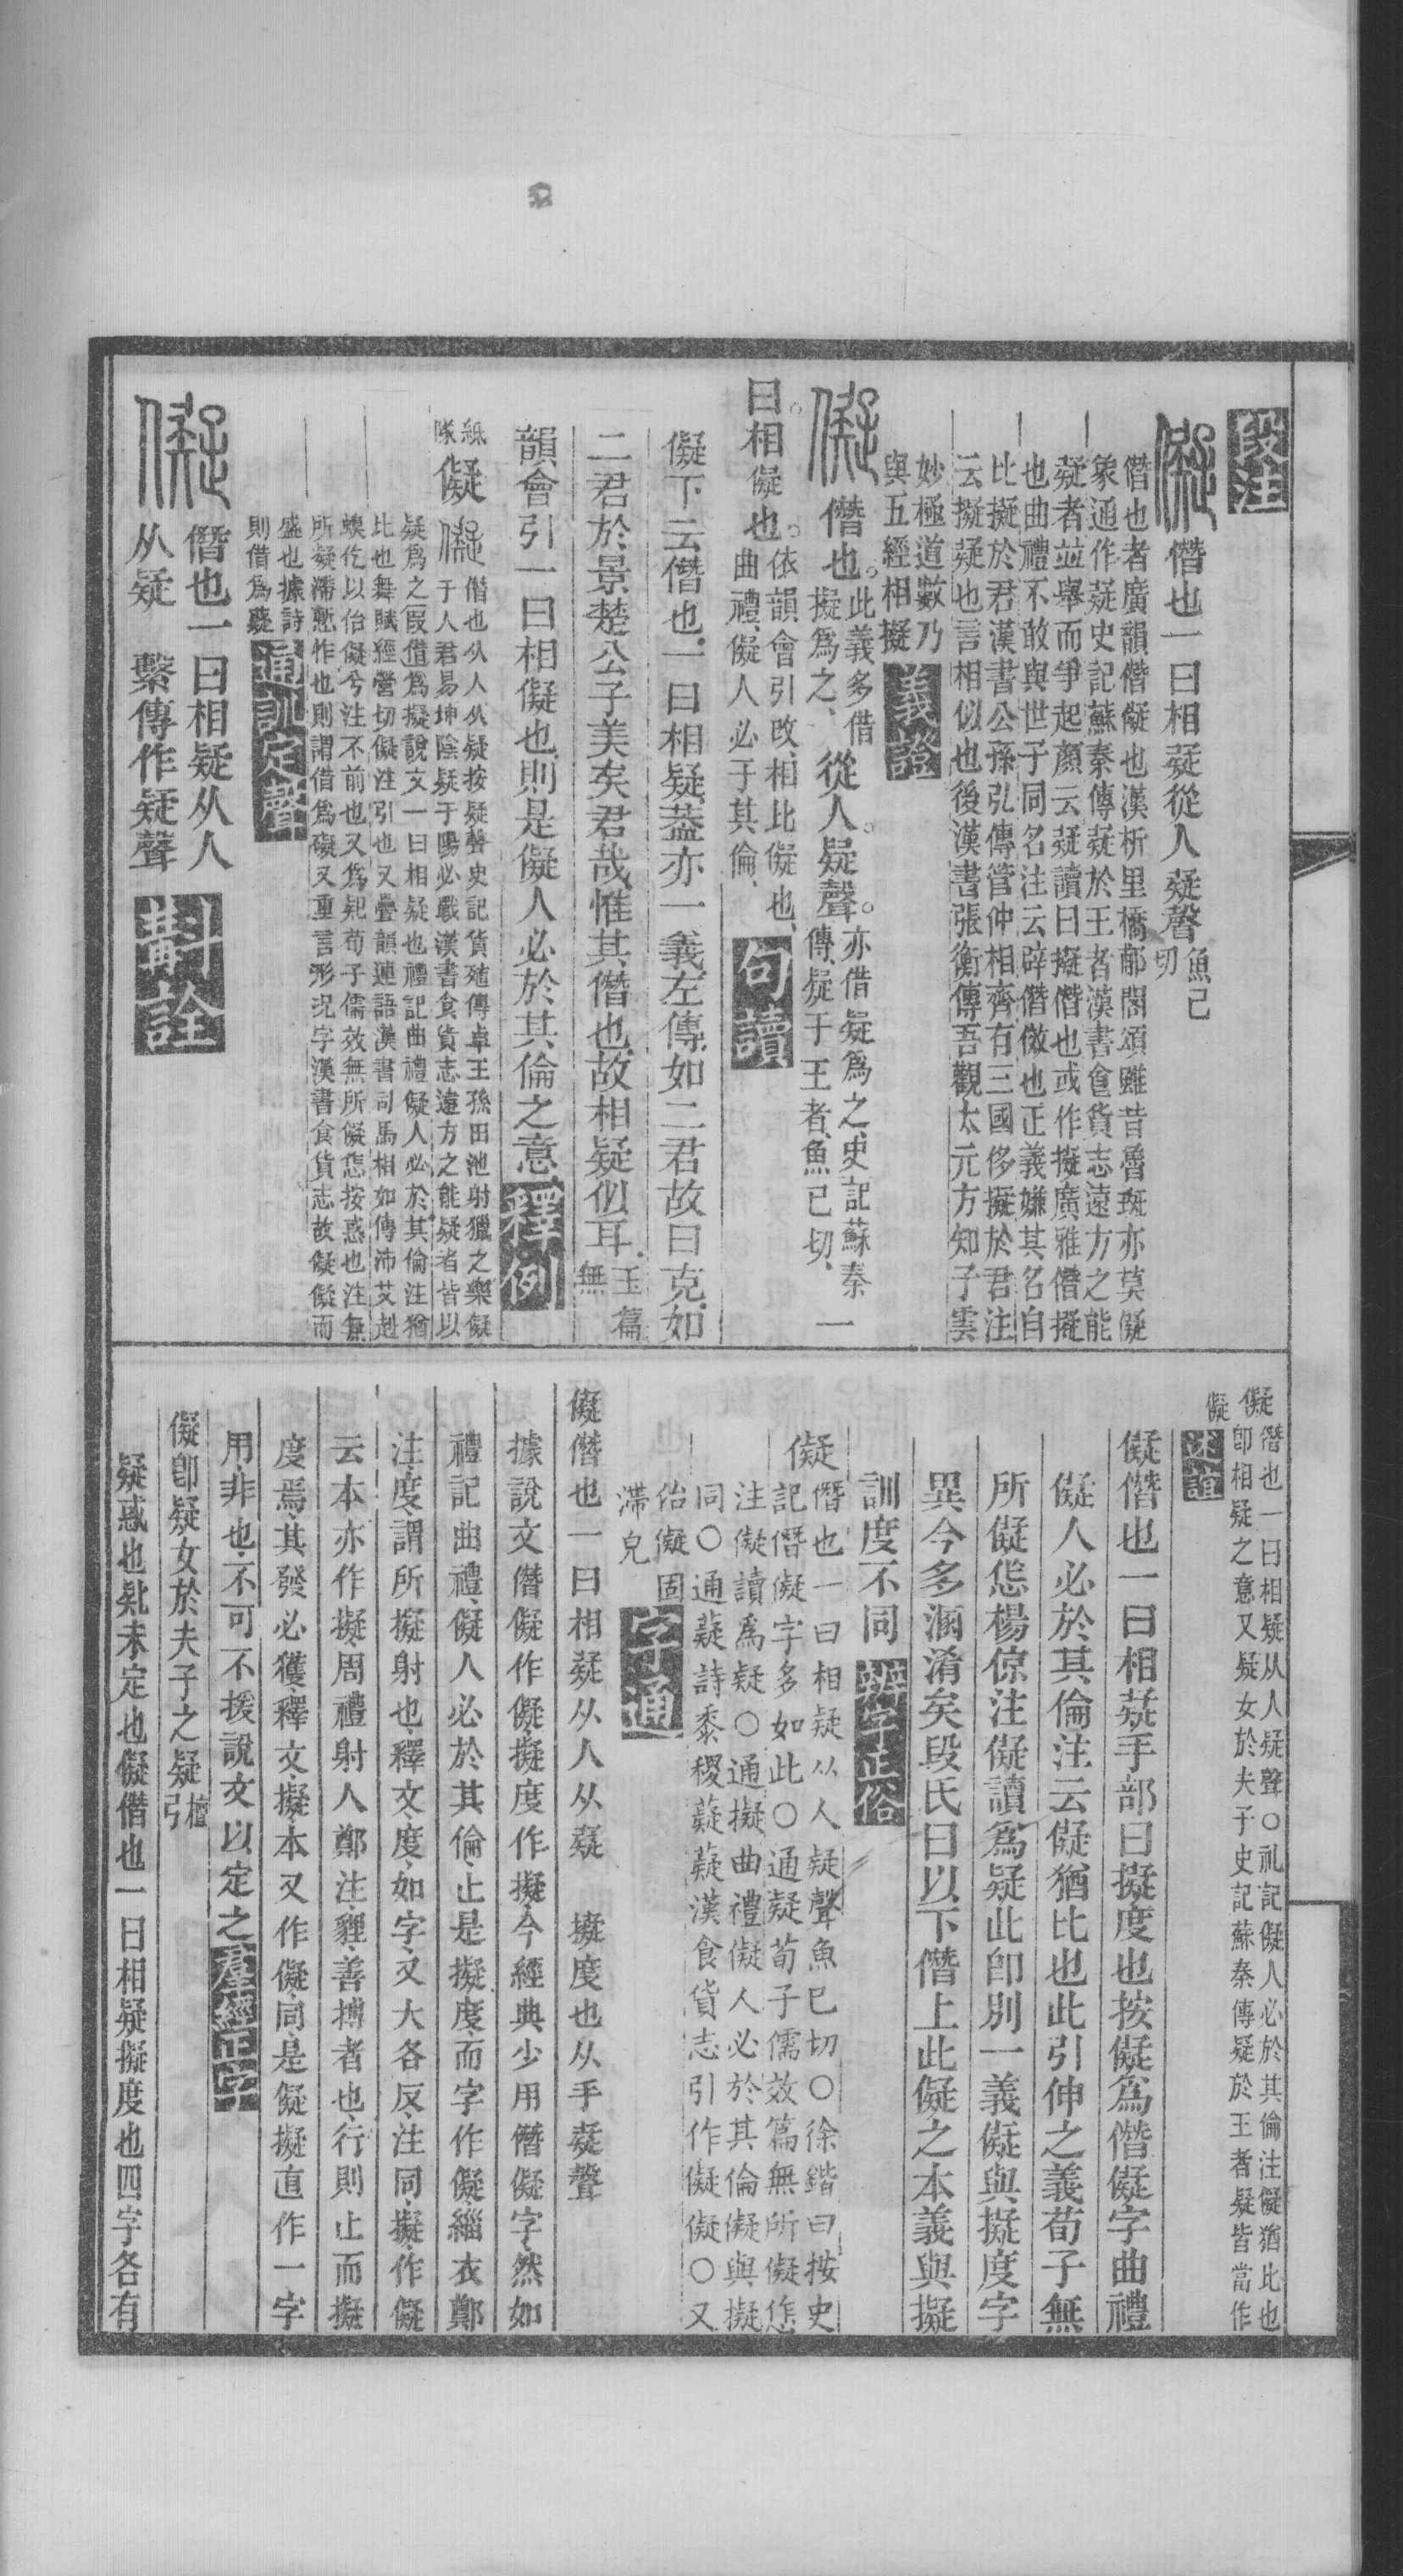 段注
儗僭也一曰相疑從人疑聲魚己切
僭也者廣韻僭儗也漢析里橋郙閣頌雖昔魯斑亦莫儗
象通作疑史記蘇秦傳疑於王者漢書食貨志遠方之能
疑者竝舉而爭起顏云疑讀曰擬僭也或作擬廣雅僭擬
也曲禮不敢與世子同名注云辟僭傚也正義嫌其名自
比擬於君漢書公孫弘傳管仲相齊有三國侈擬於君注
云擬疑也言相似也後漢書張衡傳吾觀太元方知子雲
妙極道數乃
與五經相擬
義證
儗僭也此義多借擬爲之從人疑聲亦借疑爲之史記蘇秦傳疑于王者魚已切一
曰相儗也依韻會引改相比儗也曲禮儗人必于其倫
句讀
儗下云僭也一曰相疑葢亦一義左傳如二君故曰克如
二君於景楚公子美矣君哉惟其僭也故相疑似耳玉篇無
韻會引一曰相儗也則是儗人必於其倫之意
釋例
紙隊
儗儗僭也从人从疑按疑聲史記貨殖傳卓王孫田池射獵之樂儗
于人君易坤陰疑于陽必戰漢書食貨志遠方之能疑者皆以
疑爲之叚借爲擬說文一曰相疑也禮記曲禮儗人必於其倫注猶
比也舞賦經營切儗注引也又疊韻連語漢書司馬相如傳沛艾赳
螑仡以佁儗兮注不前也又爲㠱荀子儒效無所儗怎按惑也注無
所疑滯慙怍也則謂借爲礙又重言形況字漢書食貨志故儗儗而
盛也據詩
則借爲薿
通訓定聲
儗僭也一曰相疑从人
从疑　繫傳作疑聲
斠詮
儗僭也一曰相疑从人疑聲○礼記儗人必於其倫注儗猶比也
儗卽相疑之意又疑女於夫子史記蘇秦傳疑於王者疑皆當作
儗僭也一曰相疑手部曰擬度也按儗爲僭儗字曲禮
儗人必於其倫注云儗猶比也此引伸之義荀子無
所儗怎楊倞注儗讀爲疑此卽別一義儗與擬度字
異今多溷淆矣段氏曰以下僭上此儗之本義與擬
訓度不同
辨字正俗
儗僭也一曰相疑从人疑聲魚巳切○徐鍇曰按史
記僭儗字多如此○通疑荀子儒效篇無所儗怎
注儗讀爲疑○通擬曲禮儗人必於其倫儗與擬
同○通薿詩黍稷薿薿漢食貨志引作儗儗○又
佁儗固
滯皃
字通
儗僭也一曰相疑从人从疑　擬度也从手疑聲
據說文僭儗作儗擬度作擬今經典少用僭儗字然如
禮記曲禮儗人必於其倫止是擬度而字作儗緇衣鄭
注度謂所擬射也釋文度如字又大各反注同擬作儗
云本亦作擬周禮射人鄭注貍善搏者也行則止而擬
度焉其發必獲釋文擬本又作儗同是儗擬直作一字
用非也不可不援說文以定之
羣經正字
儗卽疑女於夫子之疑檀弓
疑惑也㠯未定也儗僭也一曰相疑擬度也四字各有